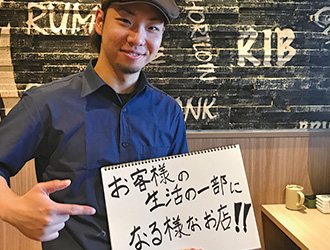 RUM
HORLON
RIB
NK
お客様の
生活の一部に
なる様なお店!!